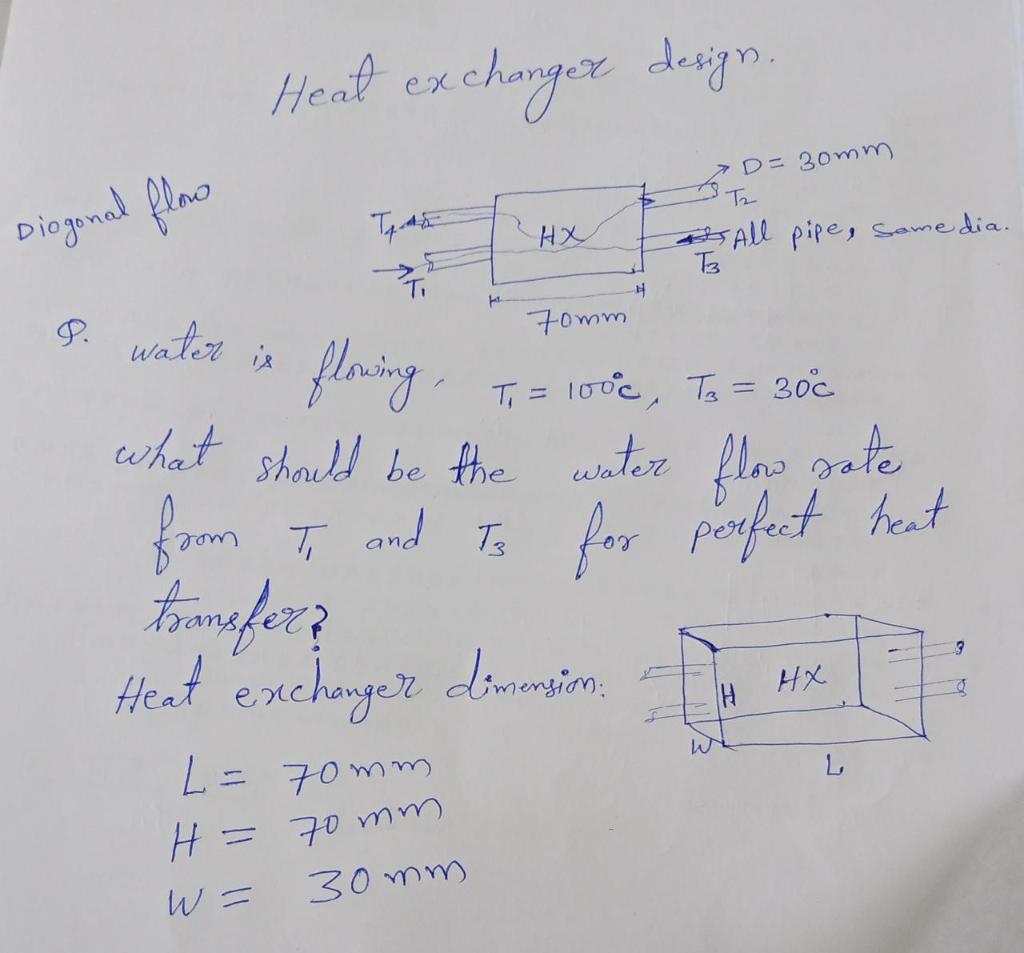 Heat exchanger design.
Diogonal flow
D = 30mm
T2
T4
HX
All pipe, same dia.
T3
T1
70mm
Q. water is flowing, T1 = 100°c, T3 = 30°c
what should be the water flow rate
from T1 and T3 for perfect heat
transfer?
Heat exchanger dimension:
H HX
W
L
L = 70mm
H = 70 mm
W = 30 mm